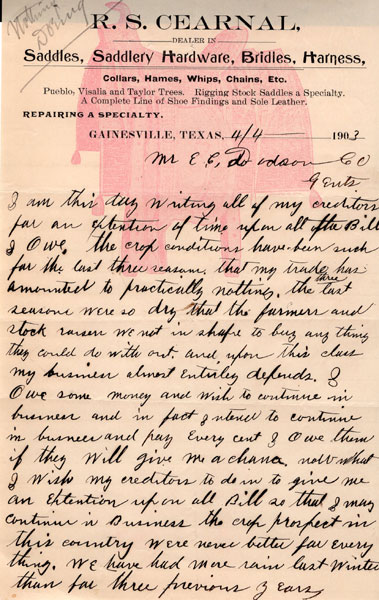 Nothing
Doing
R. S. CEARNAL,
DEALER IN
Saddles, Saddlery Hardware, Bridles, Harness,
Collars, Hames, Whips, Chains, Etc.
Pueblo, Visalia and Taylor Trees. Rigging Stock Saddles a Specialty.
A Complete Line of Shoe Findings and Sole Leather.
REPAIRING A SPECIALTY.
GAINESVILLE, TEXAS, 4/4 1903
Mr E. C. Dodson CO
Gents.
I am this day writing all of my creditors
for an extention of time upon all the Bill
I owe. the crop conditions have been such
for the last three seasons. that my trade has
amounted to practically nothing. the last
three
seasons were so dry that the farmers and
stock raisers we not in shape to buy any thing
they could do with out. and upon this class
my business almost Entirley depends. I
Owe some money and wish to continue in
business and in fact Intend to continue
in business and pay Every cent I Owe them
if they will give me a chance. now what
I wish my creditors to do is to give me
an Extention upon all Bill so that I may
continue in Business the crop prospect in
this country were never better for Every
thing. We have had more rain last Winter
than for three previous years